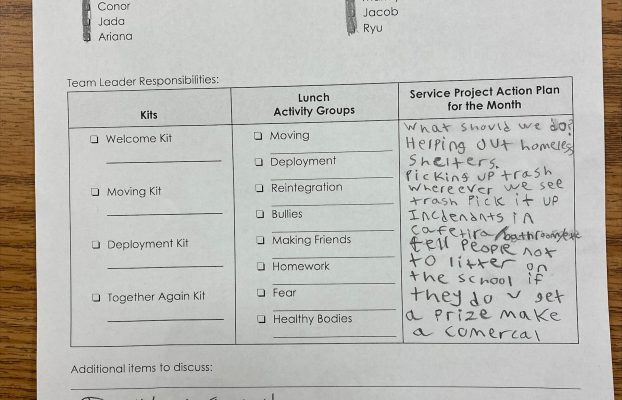 Conor
Jacob
Jada
Ryu
Ariana
Team Leader Responsibilities:
Kits
Lunch
Activity Groups
Service Project Action Plan
for the Month
Welcome Kit
Moving Kit
Deployment Kit
Together Again Kit
Moving
Deployment
Reintegration
Bullies
Making Friends
Homework
Fear
Healthy Bodies
What should we do?
Helping out homeless
Shelters.
Picking up trash
whereever we see
trash Pick it up
Incdenants in
cafetira/bathrooms
tell People not
to litter on
the school if
they do get
a prize make
a comercal
Additional items to discuss: